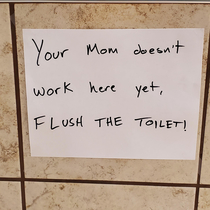 Your Mom doesn't
work here yet,
FLUSH THE TOILET!